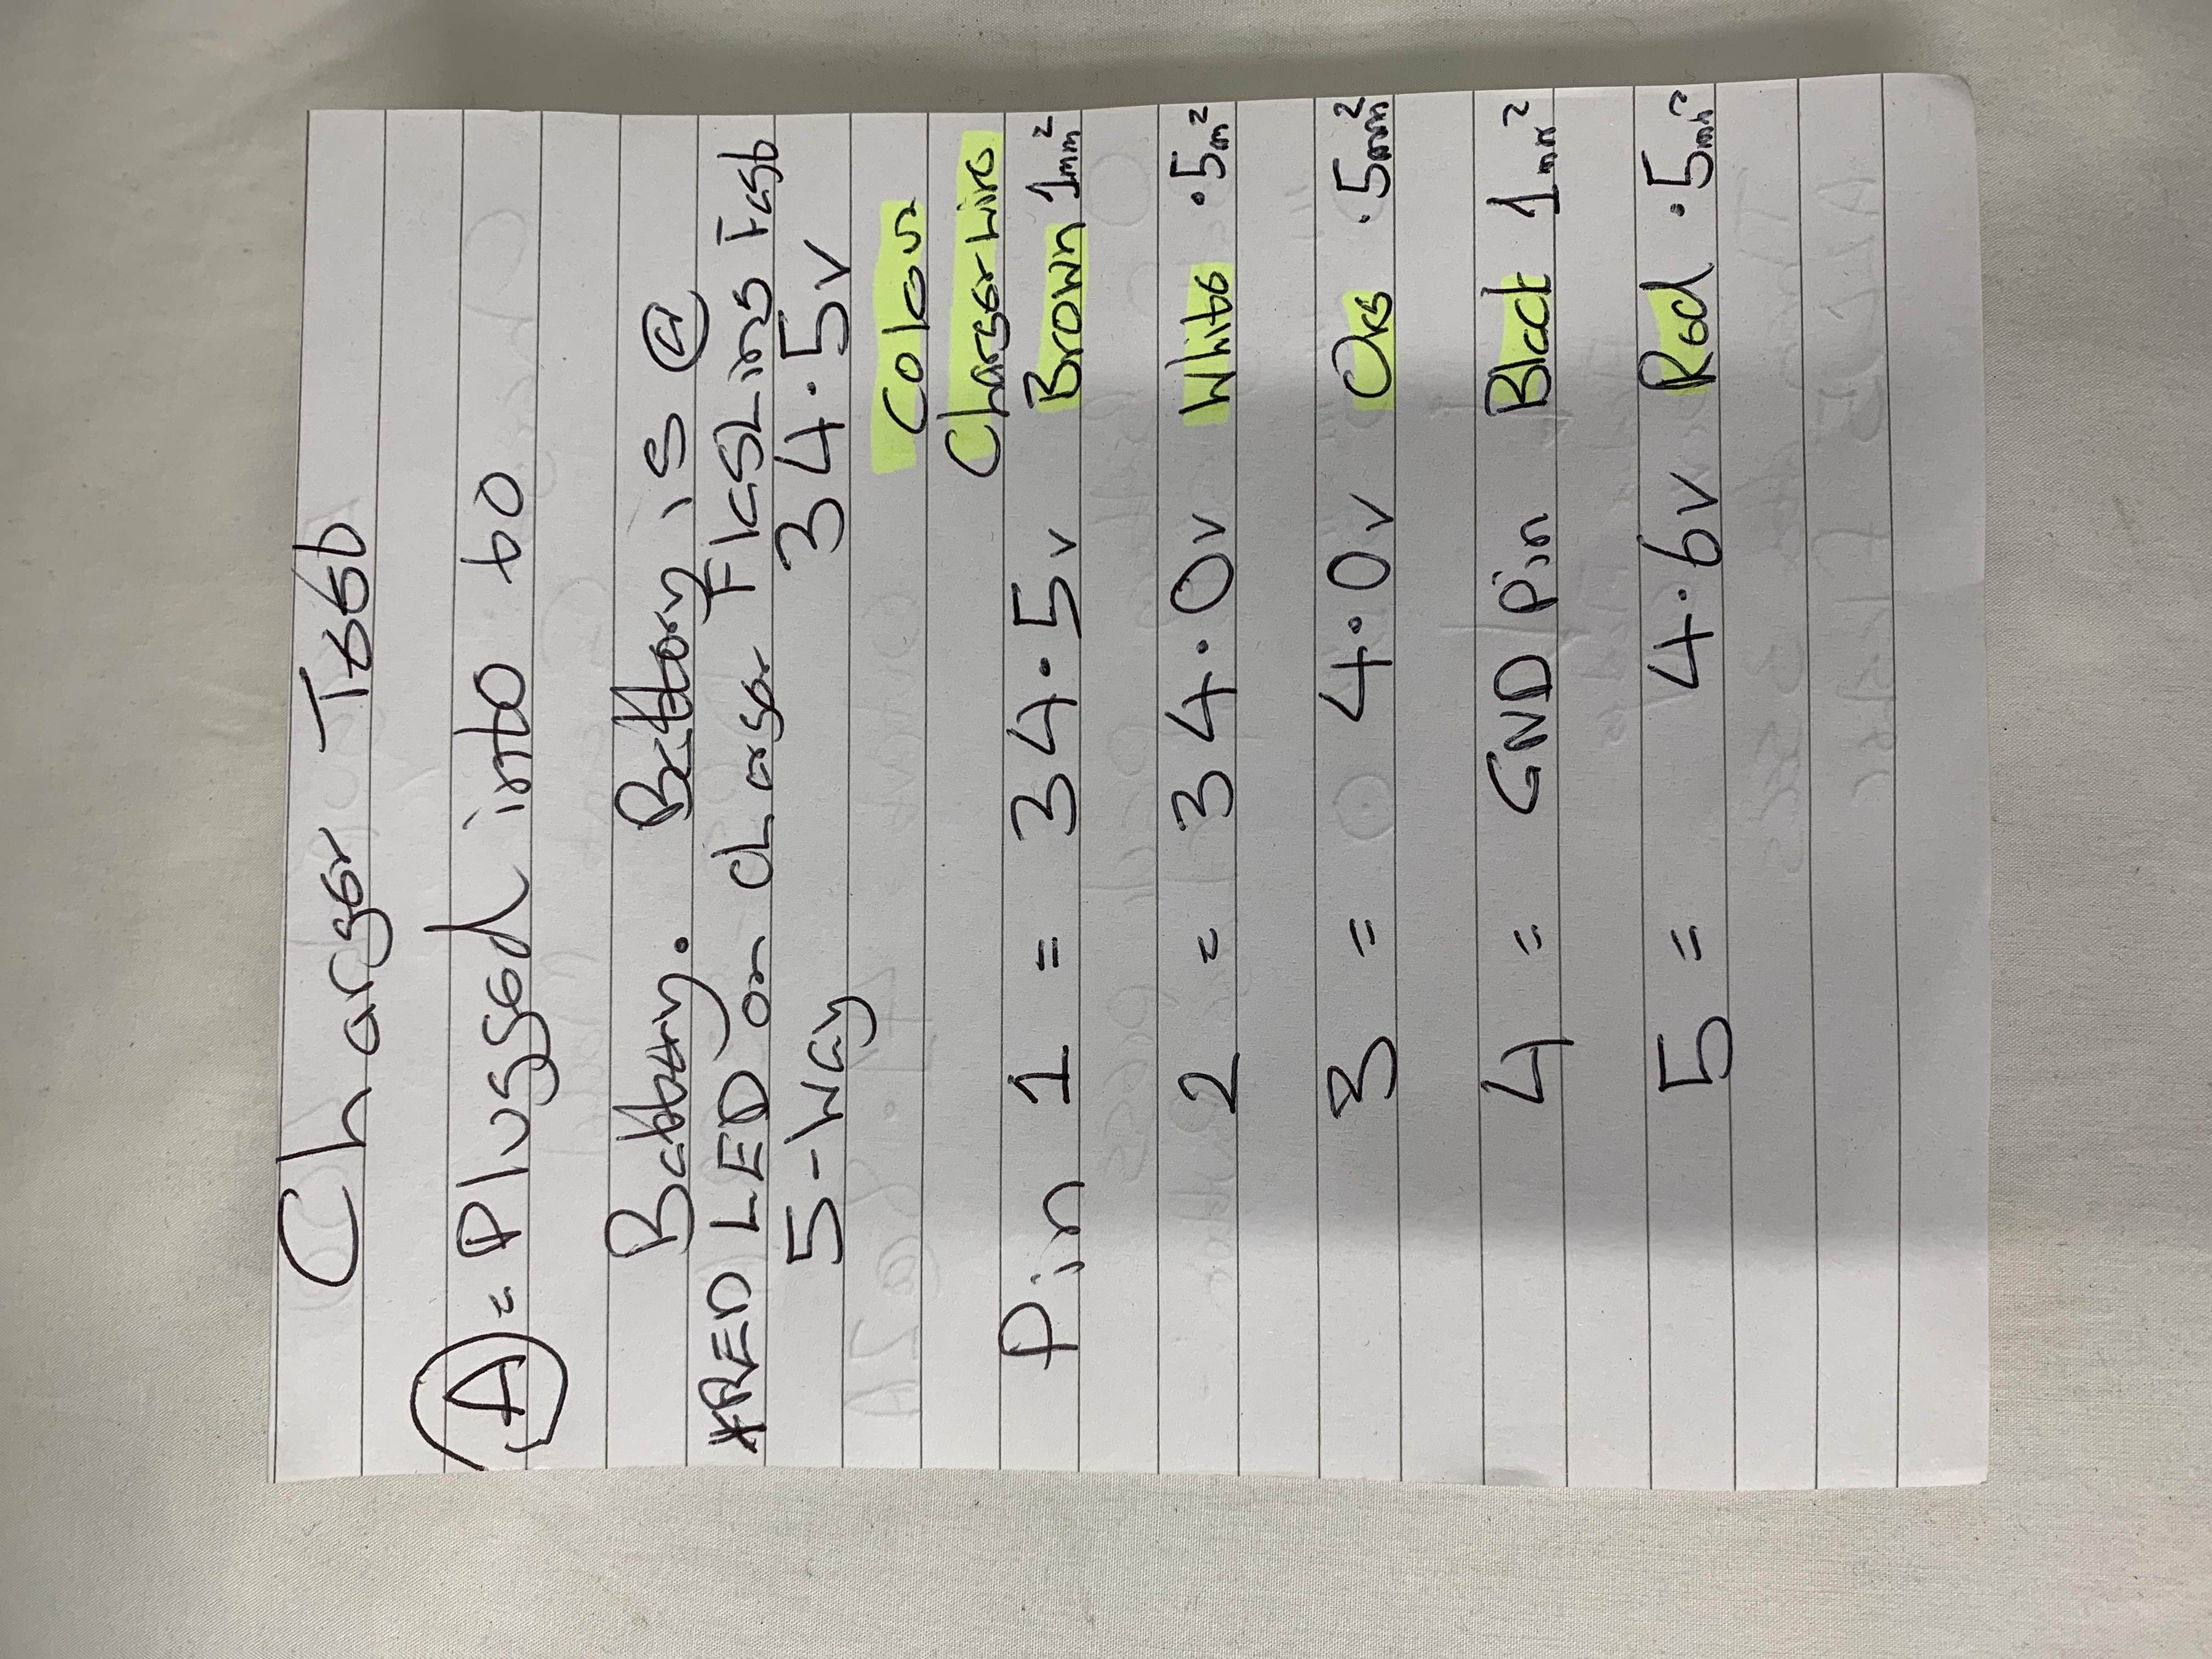 Charger Test
A = Plugged into to
Battery. Battery is @
*RED LED on charger Flashing Fast
5-Way 34.5v
Colour
Charger Wire
Pin 1 = 34.5v Brown 1mm²
2 = 34.0v White .5m²
3 = 4.0v Org .5mm²
4 = GND Pin Black 1mm²
5 = 4.6v Red .5mm²